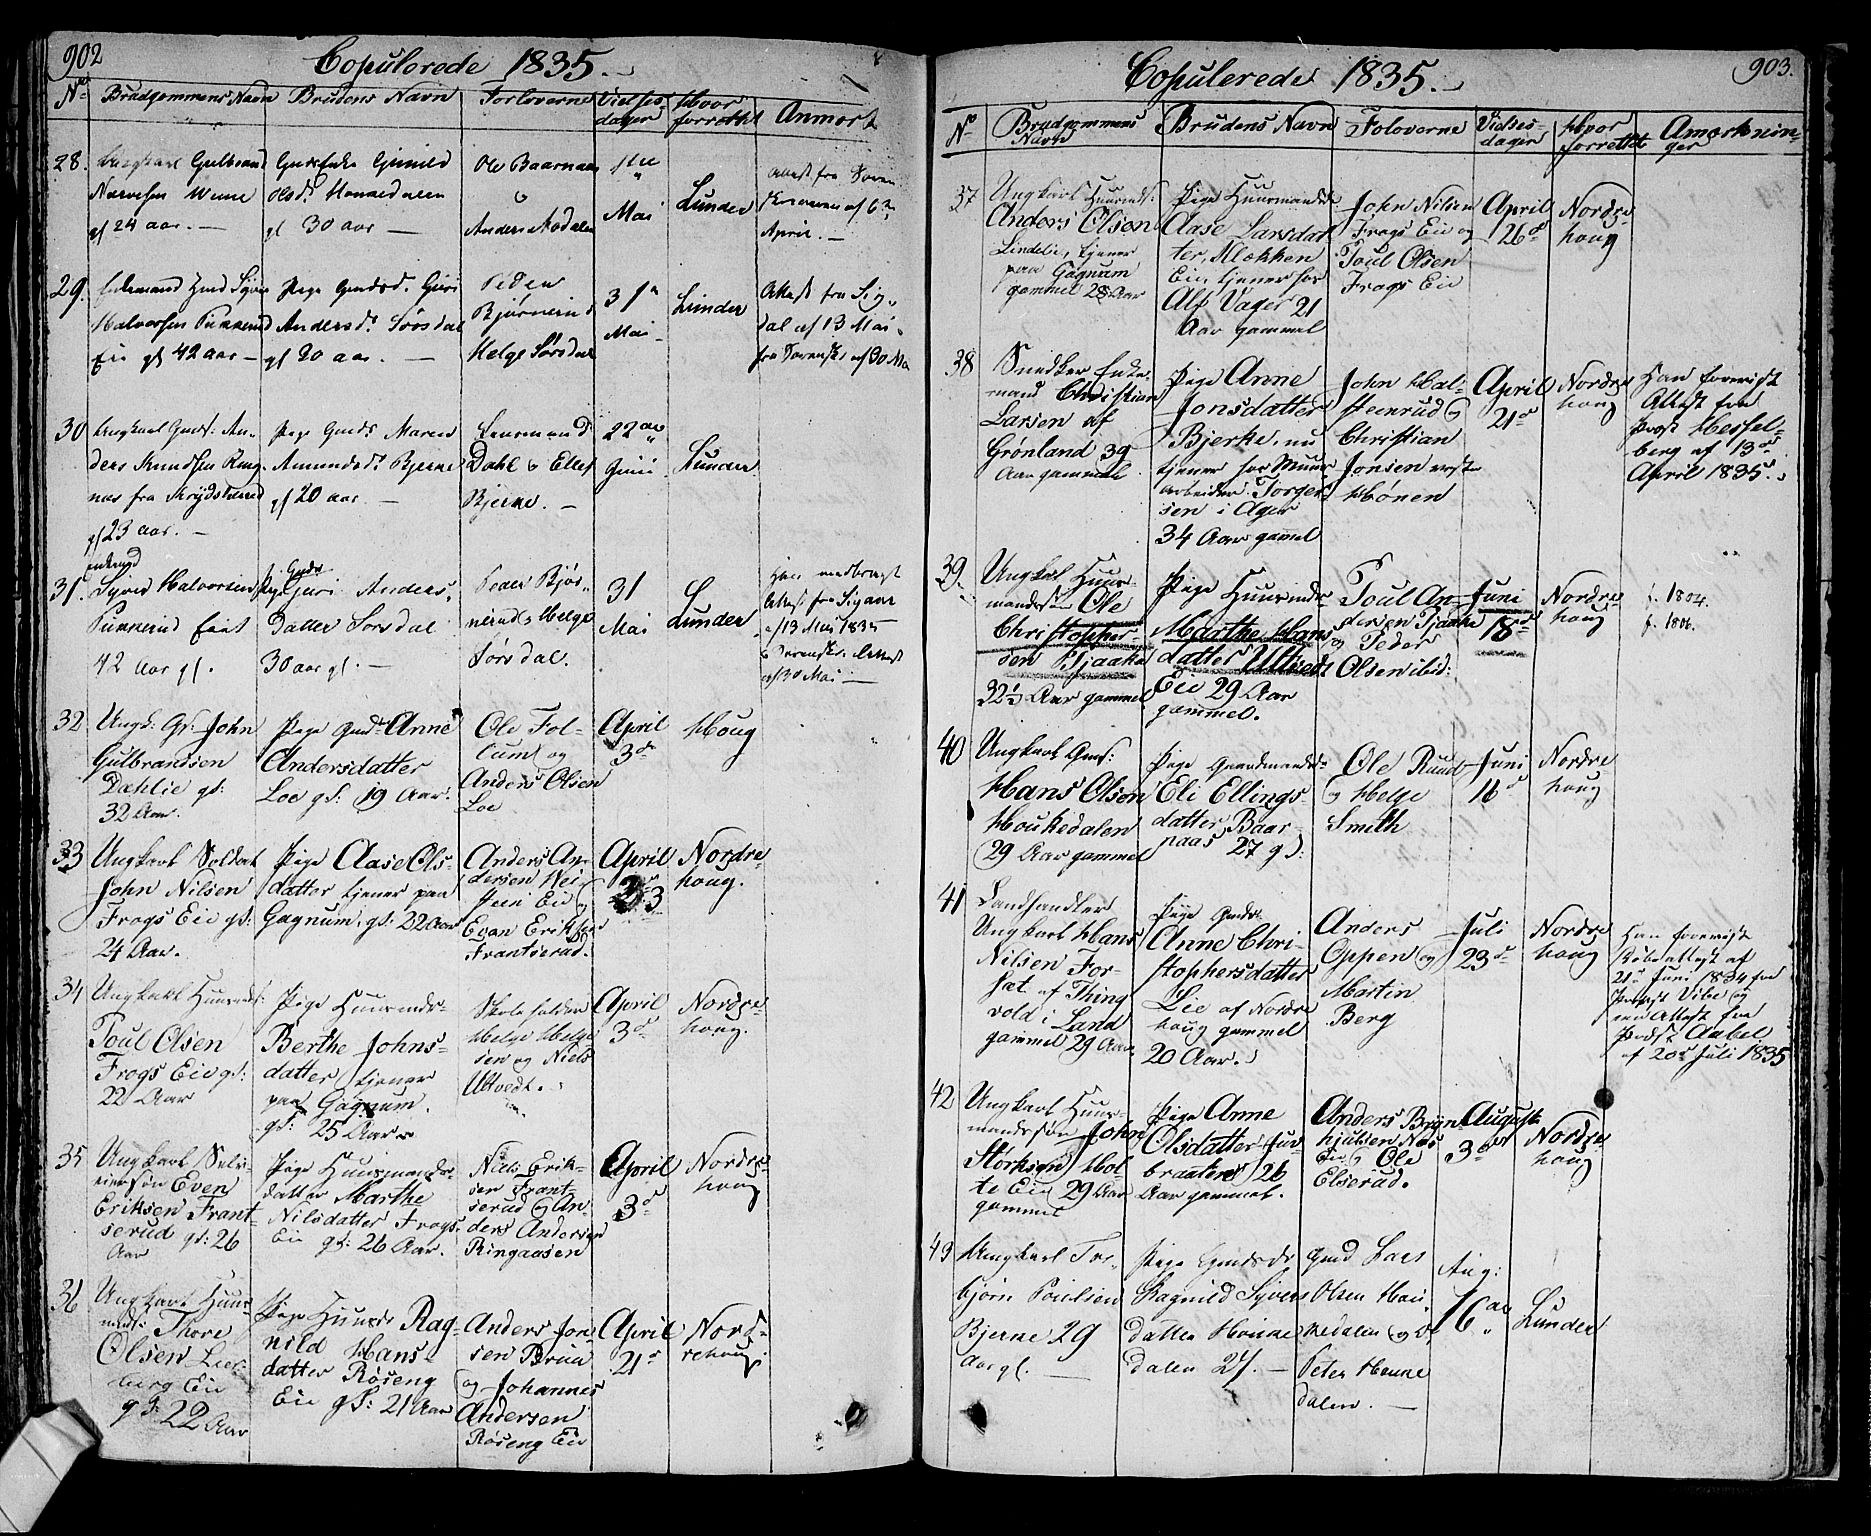 902
Copulerede 1835.
No Brudgommens Navn Brudens Navn Forloverne Vielses-dagen Hvor forrettet Anmærk
28.
Ungkarl Gulbrand
gl 24 aar.
Olsdr
gl 30 aar
Ole
Anders
1ste
Mai
Lunder
Attest fra
af 6te
April.
29.
Enkemand
Halvorsen
Eie gl 42 aar
Pige Gmdsd. Guri
Andersdr Sørsdal
gl 30 aar.
Peder
Bjørnerud
Helge Sørsdal
31te
Mai
Lunder
Attest fra Sig-
dal af 13 Mai
30
Ungkarl Gmds: An-
ders Knudsen Ring-
næs fra Krydsherred
gl 23 aar.
Pige Gmds Maren
Amundsdr Bjerke
gl 20 aar.
Dahl
Bjerke.
22de
Juni
Lunder
31.
Enkemd
Syver Halvorsen
42 Aar gl.
Pige Guri Anders-
Datter Sørsdal
30 aar gl.
Peder Bjør-
nerud & Helge
Sørsdal.
31
Mai
Lunder
Han medbragt
Attest fra Sigdal
af 13 Mai 1835
af 30 Mai
32
Ungk: Gr: John
Gulbrandsen
Dæhlie gl:
32 Aar.
Pige Gmdr Anne
Andersdatter
Loe gl: 19 Aar.
Ole Fol-
lum og
Anders Olsen
Loe
April
3de
Houg
33
Ungkarl Soldat
John Nilsen
Frogs Eie gl:
24 Aar.
Pige Aase Ols-
datter tjener paa
Gagnum, gl: 22 Aar
Anders An-
dersen
Eie og
Even Eriksen
Frantserud.
April
3
Nordre-
houg.
34
Ungkarl Huusmds:
Poul Olsen
Frogs Eie gl:
22 Aar
Pige Huusmds-
Berthe Johns-
datter tjener
paa Gagnum.
gl: 25 Aar
Skoleholder
Helge Helge-
sen og Niels
Ultvedt.
April
3d
Nordre-
houg.
35
Ungkarl Selv-
eiersøn Even
Eriksen Frant-
serud gl: 26
Aar
Pige Huusmands-
datter Marthe
Nilsdatter Frogs
Eie gl: 26 Aar.
Niels Erik-
sen Frant-
serud og An-
ders Andersen
Ringaasen
April
3d
Nordre-
houg
36
Ungkarl Huus-
mds: Thore
Olsen
berg Eie
gl: 22 Aar
Pige Huusmds Rag-
nild Hans-
datter Røseng
Eie gl: 21 Aar
Anders Jon-
sen Bruu
og Johannes
Andersen
Røseng Eie
April
21d
Nord-
rehoug.
903.
Copulerede 1835.
No Brudgommens Navn Brudens Navn Foloverne Vielses-dagen Hvor forrettet Anmærknin-ger
37
Ungkarl Huusmds:
Anders Olsen
Lindelie, tjener
paa Gagnum
gammel 28 Aar
Pige Huusmands-
Aase Larsdat
ter, Klækken
Eie, tjener hos
Alf Vager 21
Aar gammel
John Nilsen
Frogs Eie og
Poul Olsen
Frogs Eie
April
26d
Nordre
houg
38
Snedker Enke-
mand Christian
Larsen af
Grønland 39
Aar gammel
Pige Anne
Jonsdatter
Bjerke, nu
tjener hos Muur-
arbeider Torger-
sen i Ager
34 Aar gammel
John Hal-
steinrud og
Christian
Jonsen
Hønen
April
21d
Nordre
houg
Han foreviste
Attest fra
Provst Hessel-
berg af 13d
April 1835.
39.
Ungkarl Huus-
mandssøn Ole
Christopher-
sen Pjaaka
32½ Aar gammel
Pige Huusmds-
Marthe Hans
datter Ultveds
Eie 29 Aar
gammel.
Poul An-
dersen Pjaaka
og Peder
Olsen ibid:
Juni
18d
Nordre
houg
f. 1804.
f. 1806.
40
Ungkarl Gmds:
Hans Olsen
Houkedalen
29 Aar gammel
Pige Gaardmands-
Eli Ellings-
datter, Baar
naas 27 gl:
Ole Ruud
og Helge
Smith
Juni
16d
Nordre
houg
41
Landhandler
Ungkarl Hans
Nilsen For-
sæt af Thing
vold i Land
gammel 29 Aar
Pige Gmds-
Anne Chri-
stophersdatter
Lie af Nordre
houg gammel
20 Aar.
Anders
Oppen og
Martin
Berg
Juli
23d
Nordre
houg
Han foreviste
Døbeattest af
21d Juni 1834 fra
Provst Vibe og
een Attest fra
Provst Aabel
af 20d Juli 1835
42
Ungkarl Huus-
mandssøn John
Størksen Hol
te Eie 29 Aar
gammel
Pige Anne
Olsdatter Fur
braaten 26
Aar gammel.
Anders Bryn
hjulsen Næs
Eie og Ole
Elserud.
August
3d
Nordre
houg
43
Ungkarl Tor-
bjørn Poulsen
Bjerke 29
Aar gl.
Pige Gmdsd
Ragnild Syvers
datter Houke
dalen 27.
Gmd Lars
Olsen Hou-
kedalen og
Peter Houke
dalen.
Aug:
16de
Lunder